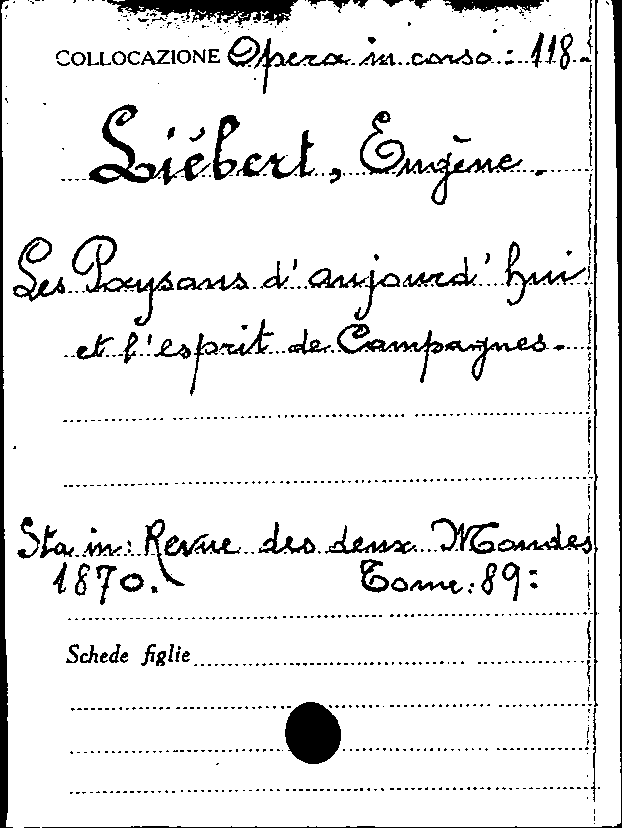 COLLOCAZIONE Opera in corso: 118.
Liébert, Eugène.
Les Paysans d'aujourd'hui
et l'esprit de Campagnes.
Sta in: Revue des deux Mondes
1870. Tome: 89:
Schede figlie